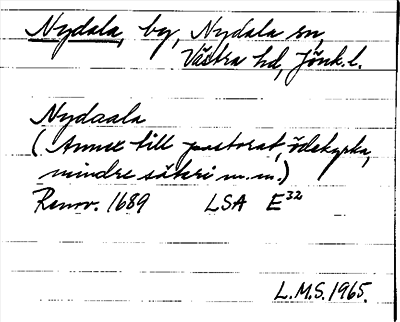 Nydala, by, Nydala sn,
Västra hd, Jönk. l.
Nydaala
(Annex till pastorat, ödekyrka,
mindre säteri m.m.)
Renov. 1689 LSA E32
L.M.S. 1965.